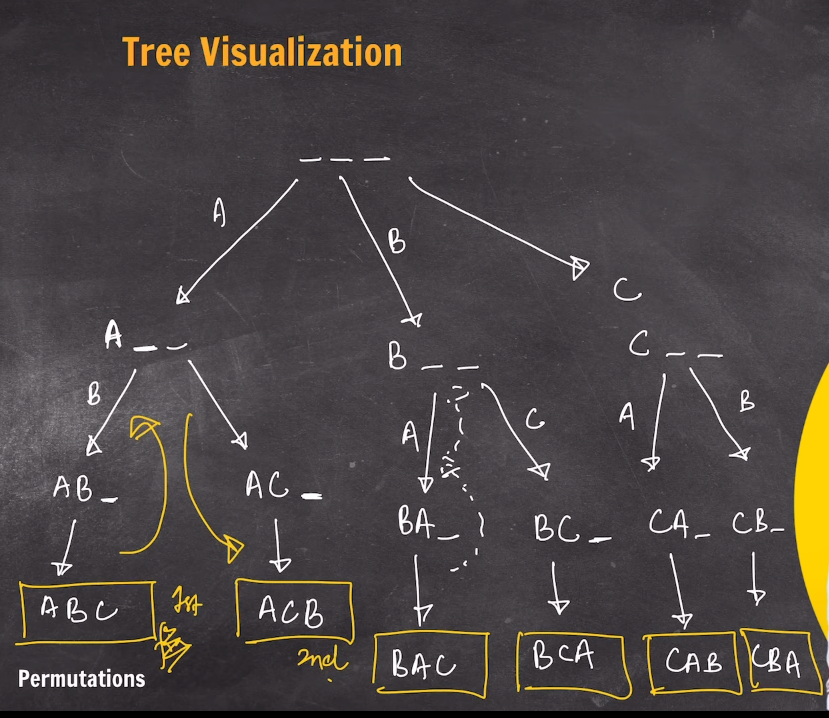 Tree Visualization
_ _ _
A
B
C
A _ _
B _ _
C _ _
B
A
C
A
B
AB _
AC _
BA _
BC _
CA _
CB _
ABC
1st
ACB
2nd
BAC
BCA
CAB
CBA
Permutations